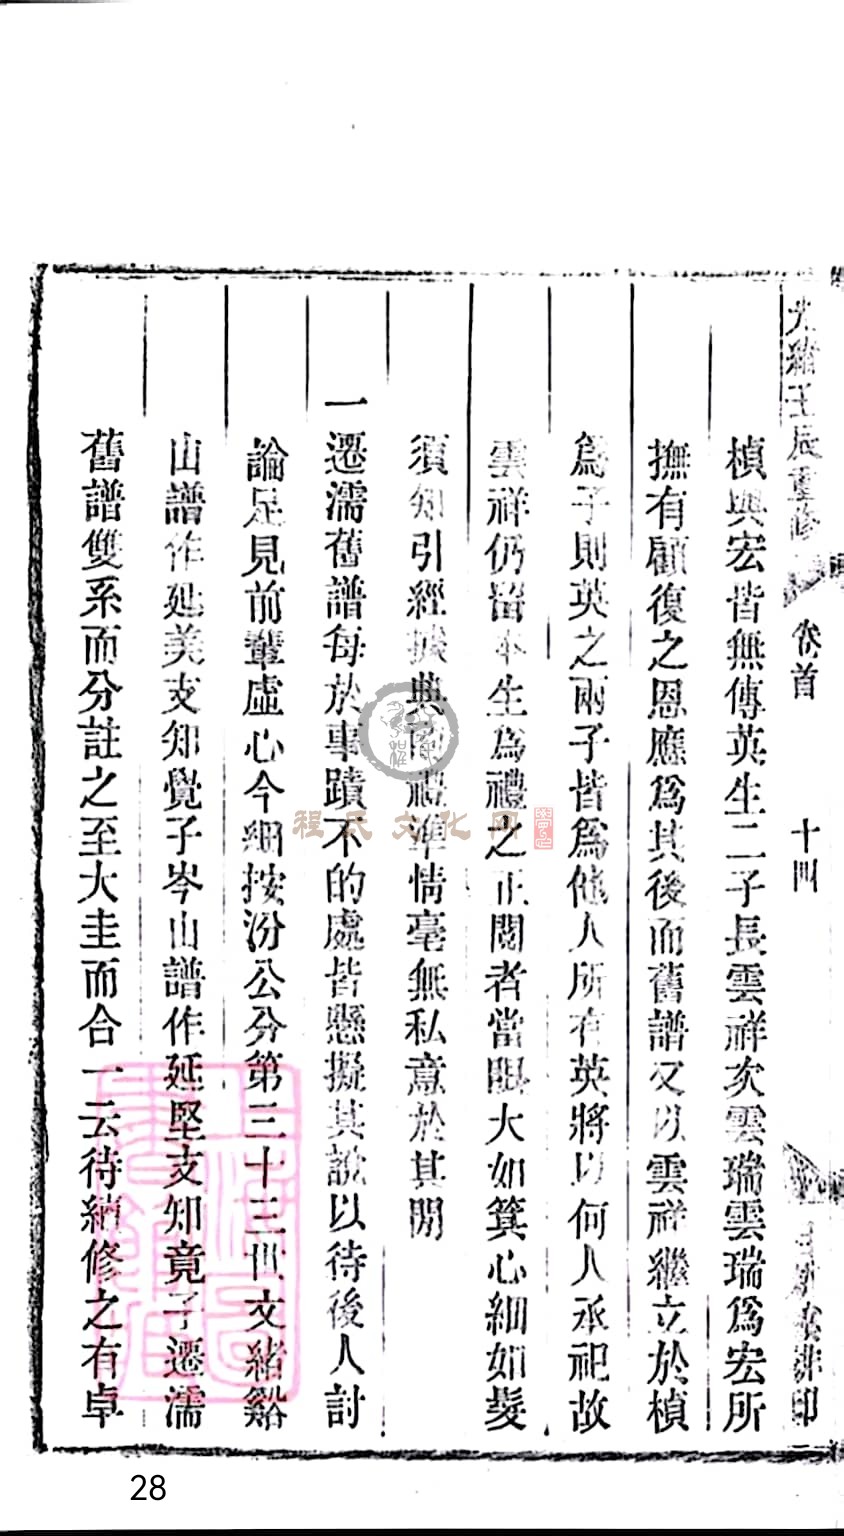 光緒壬辰重修
卷首
十四
楨與宏皆無傳英生二子長雲祥次雲瑞雲瑞爲宏所
撫有顧復之恩應爲其後而舊譜又以雲祥繼立於楨
爲子則英之兩子皆爲他人所有英將以何人承祀故
雲祥仍留本生爲禮之正閱者當眼大如箕心細如髮
須知引經據典 禮準情毫無私意於其閒
一遷濡舊譜每於事蹟不的處皆懸擬其說以待後人討
論足見前輩虛心今細按汾公分第三十三世文緒谿
山譜作延美支知覺子岑山譜作延堅支知竟子遷濡
舊譜雙系而分註之至大圭而合一云待續修之有卓
程氏文化网
28